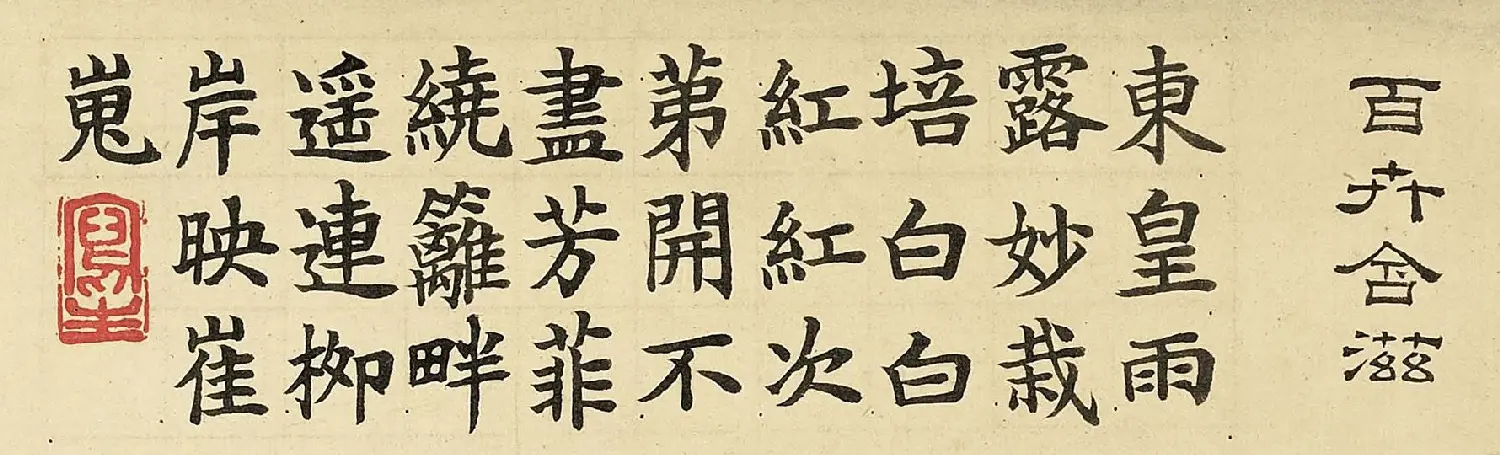 百卉含滋
東皇雨
露妙栽
培白白
紅紅次
苐開不
盡芳菲
繞籬畔
遥連柳
岸映崔
嵬